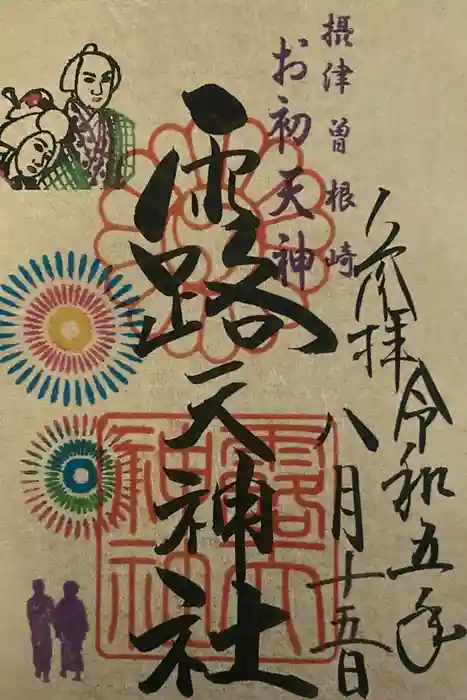 摂津曽根崎
お初天神
奉拝
令和五年
八月十五日
露天神社